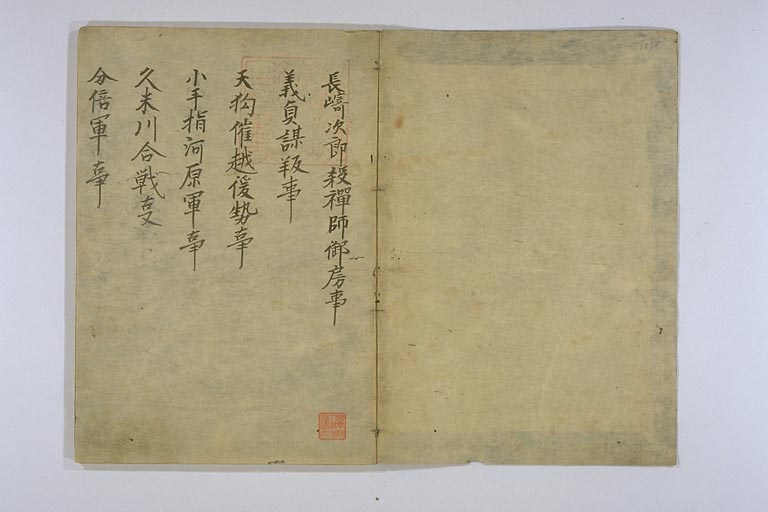 長崎次郎殺禪師御房事
義貞謀叛事
天狗催越後勢事
小手指河原軍事
久米川合戦事
分倍軍事